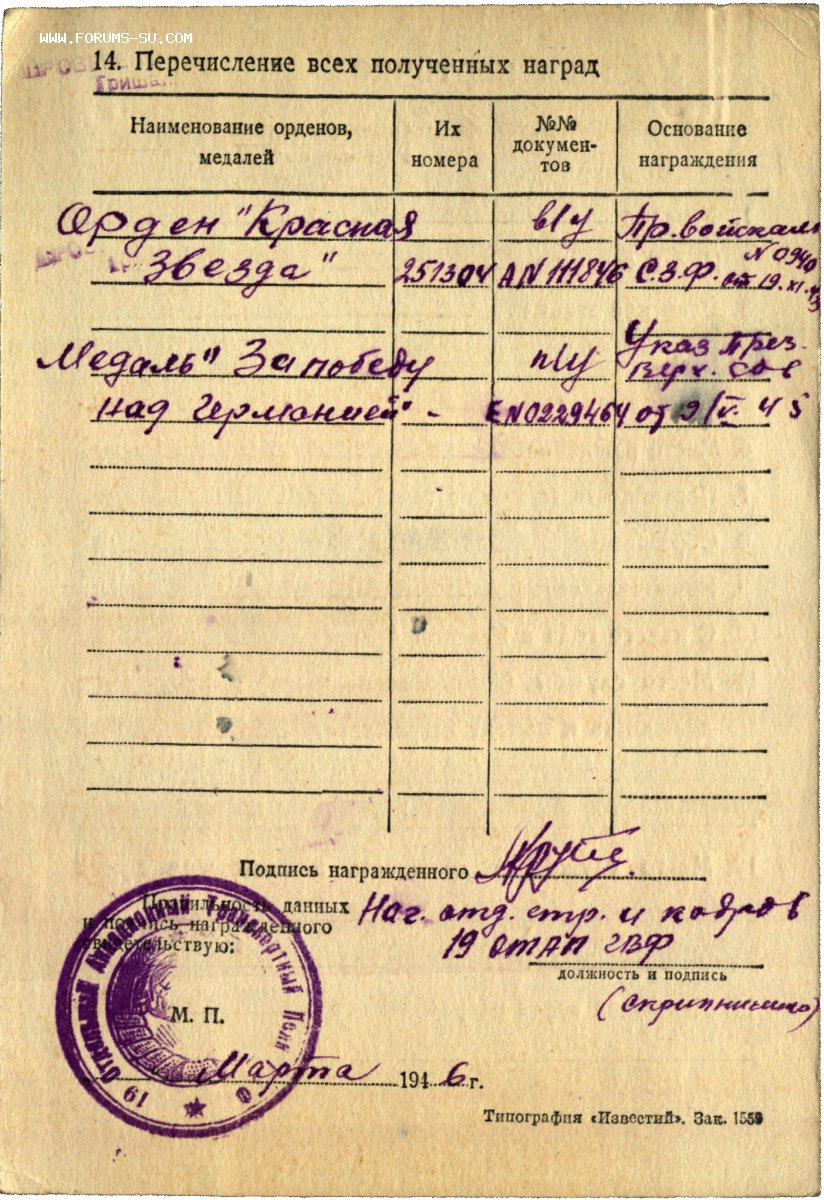 www.forums-su.com
14. Перечисление всех полученных наград
Наименование орденов, медалей
Их номера
№№ докумен-тов
Основание награждения
Орден "Красная в/у Пр. войскам
Звезда" 251304 А N 111846 С.З.Ф. N 0940 от 19.XI.43
Медаль "За победу п/у Указ През. Верх. Сов
над Германией" - Е N 0229464 от 9/V. 45
Подпись награжденного
Правильность данных
и подпись награжденного
свидетельствую:
Нач. отд. стр. и кадров
19 ОТАП ГВФ
должность и подпись
(Скрипниченко)
М. П.
19 Отдельный Авиационный Транспортный Полк
Марта 1946 г.
Типография «Известий». Зак. 1559